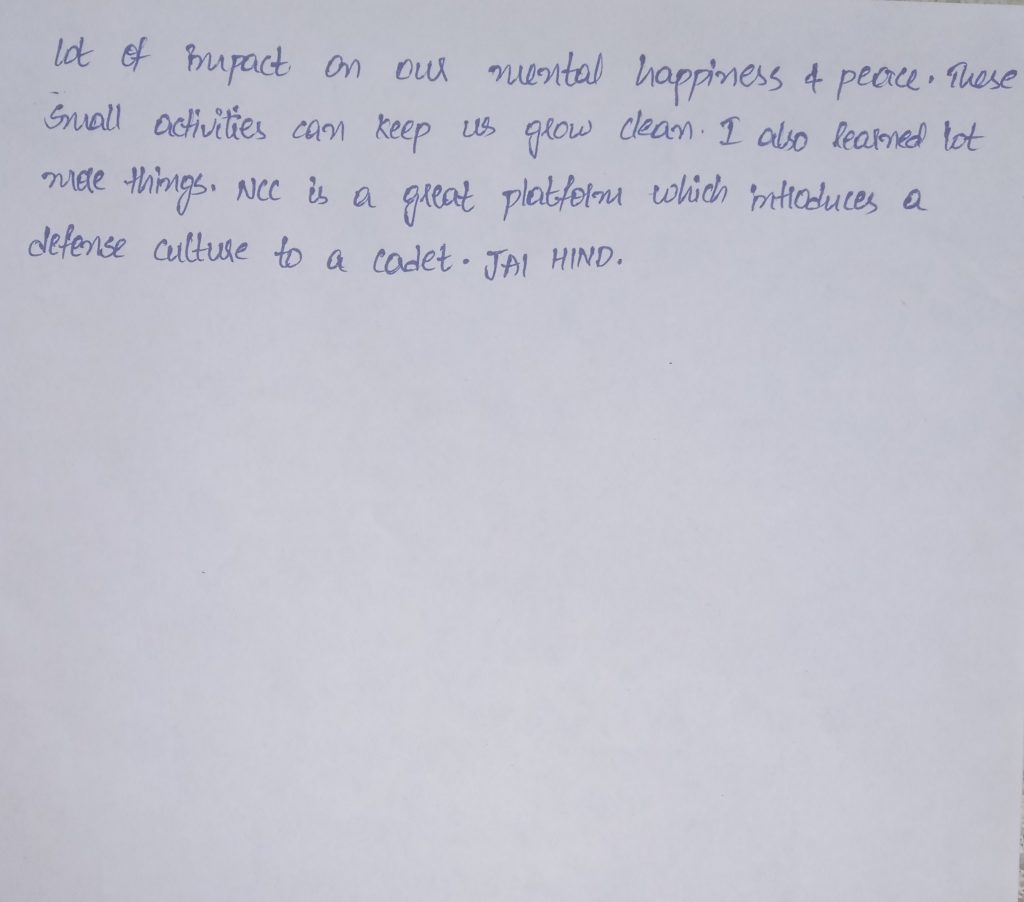 lot of impact on our mental happiness & peace. These
small activities can keep us grow clean. I also learned lot
more things. NCC is a great platform which introduces a
defense culture to a cadet. JAI HIND.